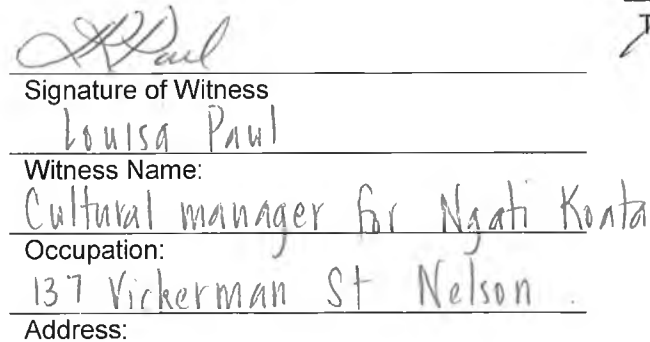 LRPaul
Signature of Witness
Louisa Paul
Witness Name:
Cultural manager for Ngati Koata
Occupation:
137 Vickerman St Nelson.
Address: